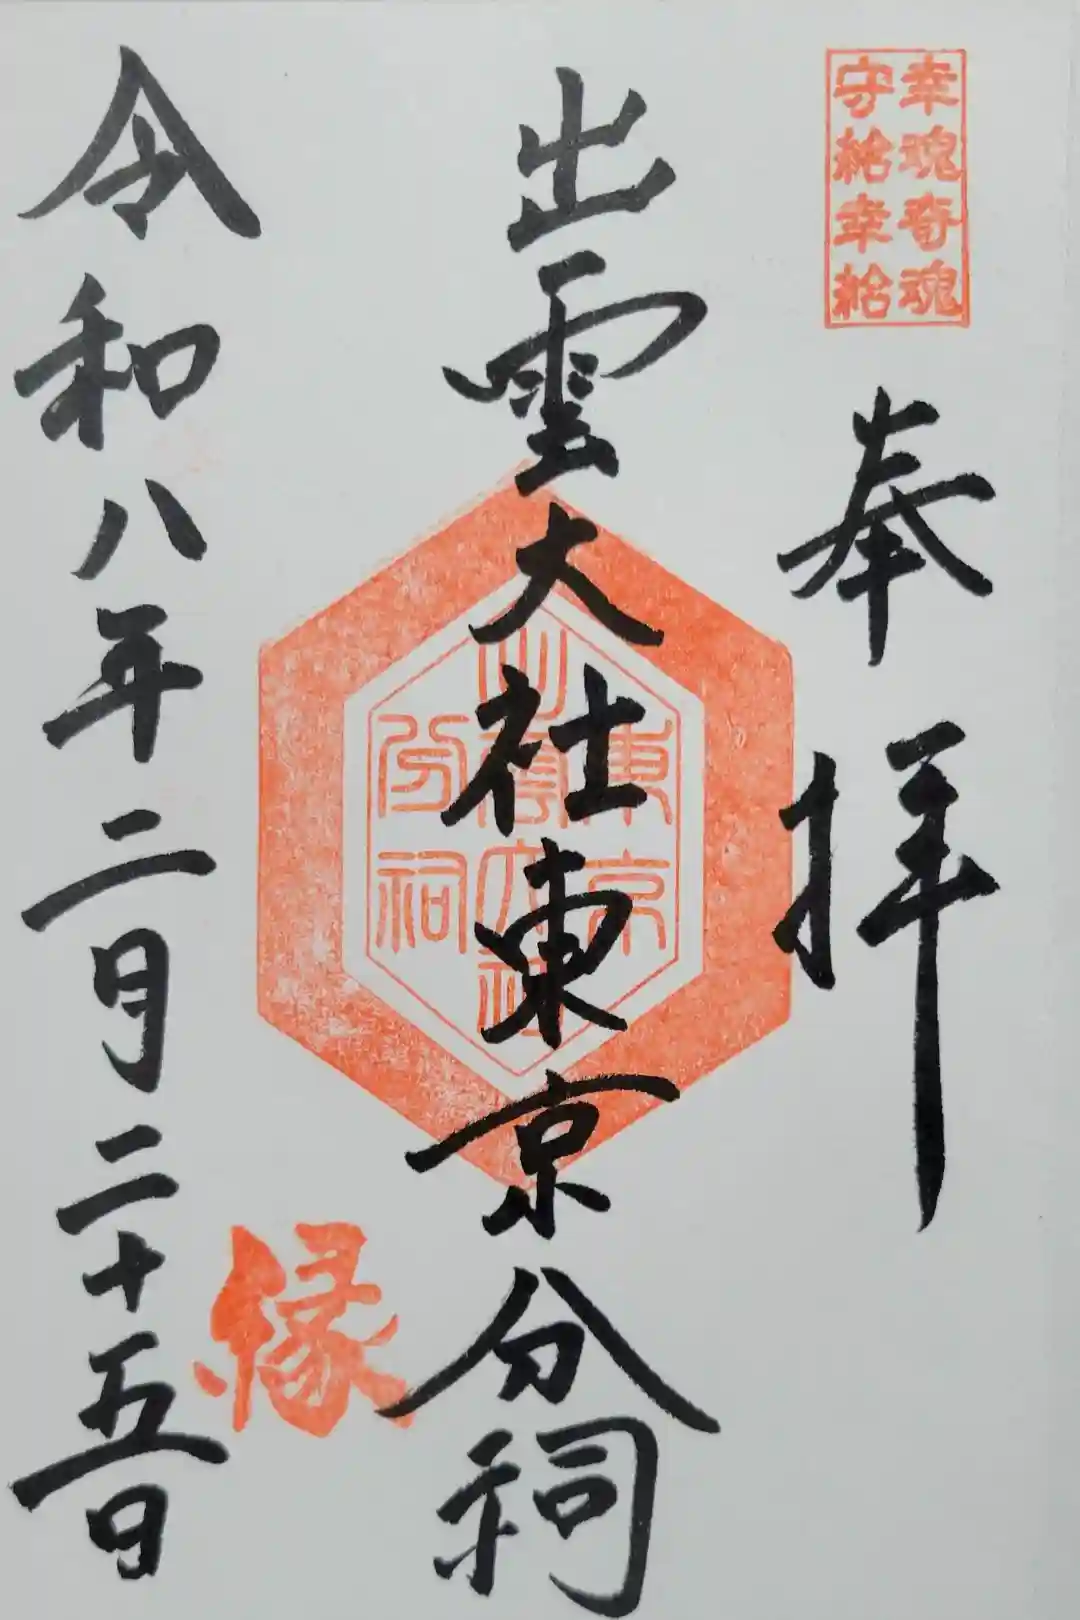 幸魂奇魂
守給幸給
奉拝
出雲大社東京分祠
東京
出雲大社
分祠
縁
令和八年二月二十五日